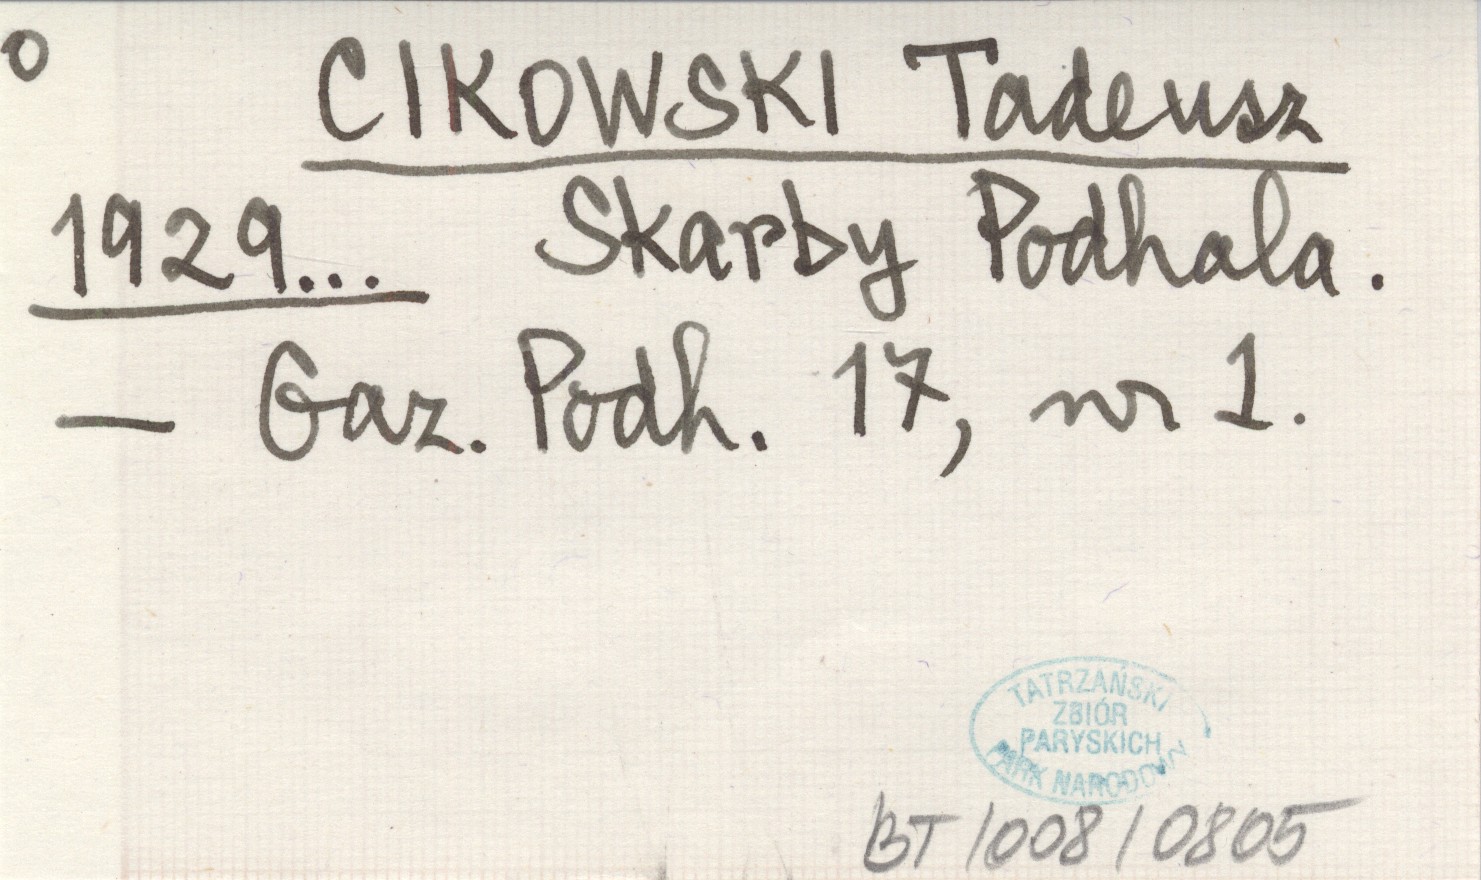 o
CIKOWSKI Tadeusz
1929... Skarby Podhala.
— Gaz. Podh. 17, nr 1.
TATRZAŃSKI
ZBIÓR
PARYSKICH
PARK NARODOWY
BT/008/0805